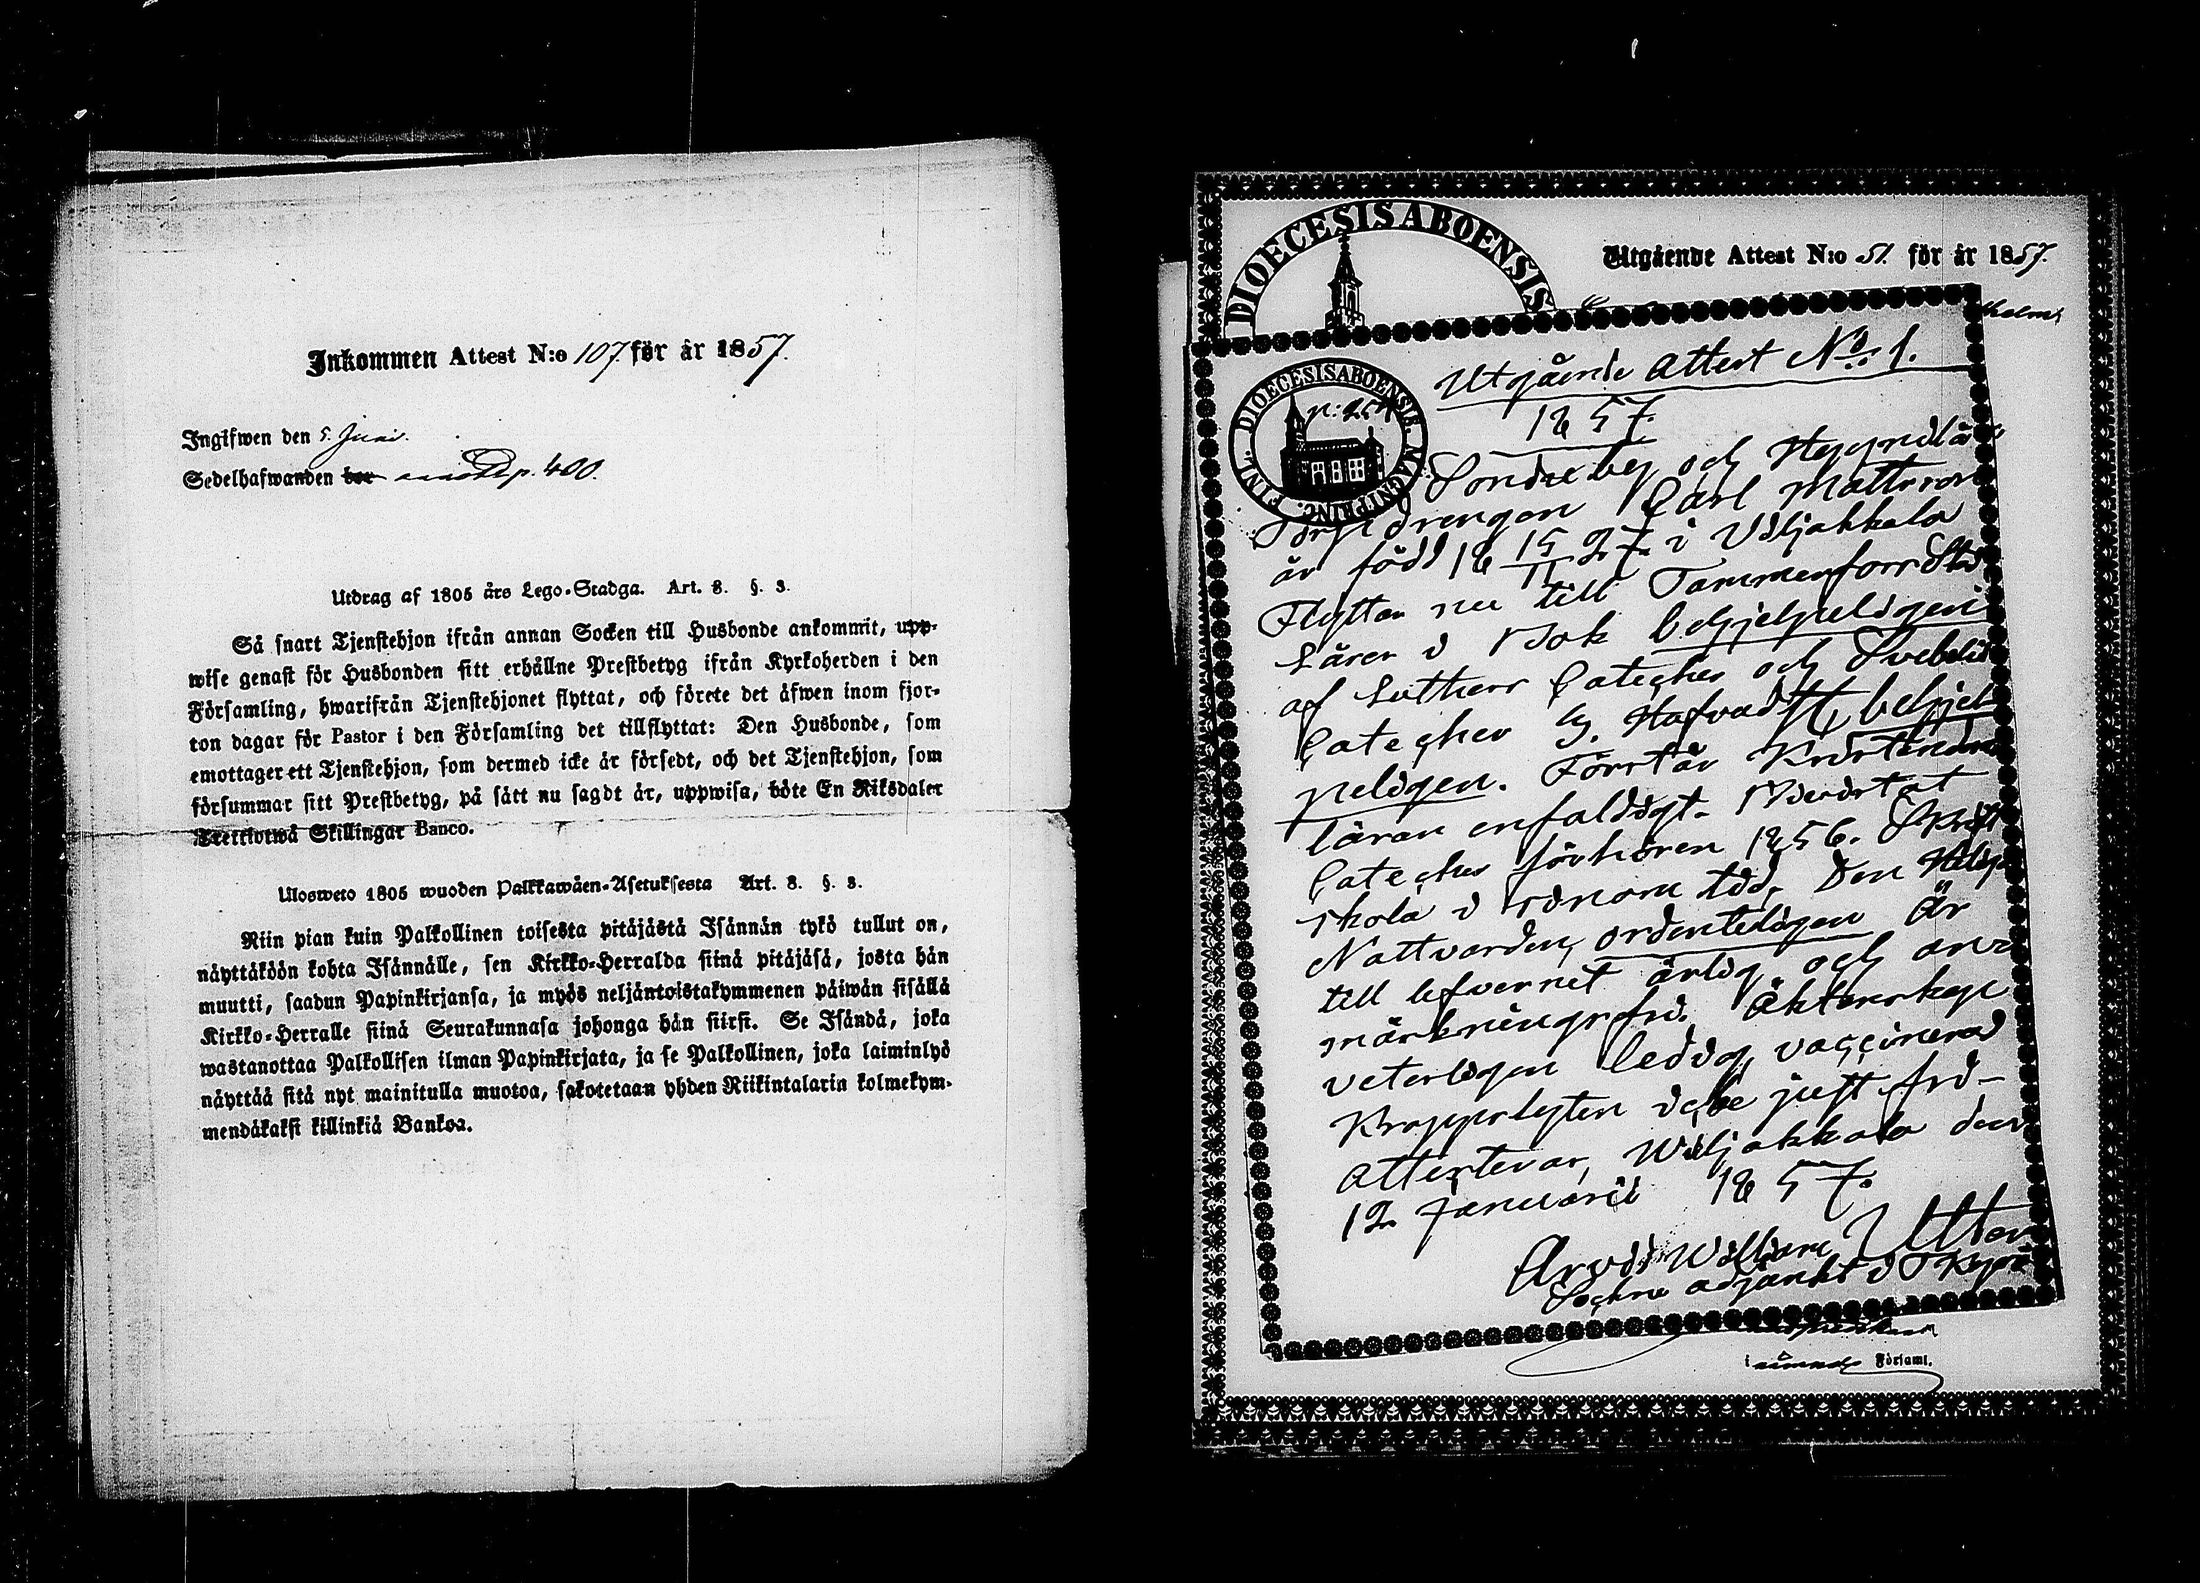 Inkommen Attest N:o 107. för år 1857.
Ingifwen den 5. Juni.
Sedelhafwanden bor p. 400.
Utdrag af 1805 års Lego-Stadga. Art. 8. §. 3.
Så snart Tjenstehjon ifrån annan Socken till Husbonde ankommit, upp-
wise genast för Husbonden sitt erhållne Prestbetyg ifrån Kyrkoherden i den
Församling, hwarifrån Tjenstehjonet flyttat, och förete det äfwen inom fjor-
ton dagar för Pastor i den Församling det tillflyttat: Den Husbonde, som
emottager ett Tjenstehjon, som dermed icke är försedt, och det Tjenstehjon, som
försummar sitt Prestbetyg, på sätt nu sagdt är, uppwisa, böte En Riksdaler
Trettiotwå Skillingar Banco.
Ulosweto 1805 wuoden Palkkawäen-Asetuksesta Art. 8. §. 3.
Niin pian kuin Palkollinen toisesta pitäjästä Isännän tykö tullut on,
näyttäköön kohta Isännälle, sen Kirkko-Herralda siinä pitäjäsä, josta hän
muutti, saadun Papinkirjansa, ja myös neljäntoistakymmenen päiwän sisällä
Kirkko-Herralle siinä Seurakunnasa johonga hän siirsi. Se Isändä, joka
wastanottaa Palkollisen ilman Papinkirjata, ja se Palkollinen, joka laiminlyö
näyttää sitä nyt mainitulla muotoa, sakotetaan yhden Riikintalarin kolmekym-
mendäkaksi killinkiä Bankoa.
DIOECESIS ABOENSIS
Utgående Attest N:o 51. för år 1857.
holms
Utgående Attest No. 1.
1857.
DIOECESIS ABOENSIS. MAGNI PRINC. FINL.
Sondeeby och
drengen Carl Mattsson
är född 18 15/11 27. i Viljakkala
Flyttar nu till Tammerforss Stad
Läser i Bok behjelpeligen
af Luthers Cateches och Svebelii
Cateches g. Hafvadtt, behjel
peligen. Förstår Kristendoms
läran enfaldigt. Bevistat
Cateches förhören 1856. Skrift
skola i sinom tid, Den Heliga
Nattvarden, ordenteligen Är
till lefvernet ärlig och an
märkningsfri. Äktenskaps
veterligen ledig, vaccinerad
Kroppslyten icke just fri-
Attesterar, Wiljakkala den
12 Januarii 1857.
Arvid William
Sockne adjunkt i Kyro
i Församl.